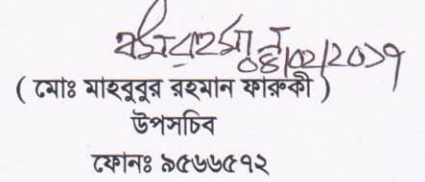 ০৪/০২/২০১৭
( মোঃ মাহবুবুর রহমান ফারুকী )
উপসচিব
ফোনঃ ৯৫৬৬৫৭২